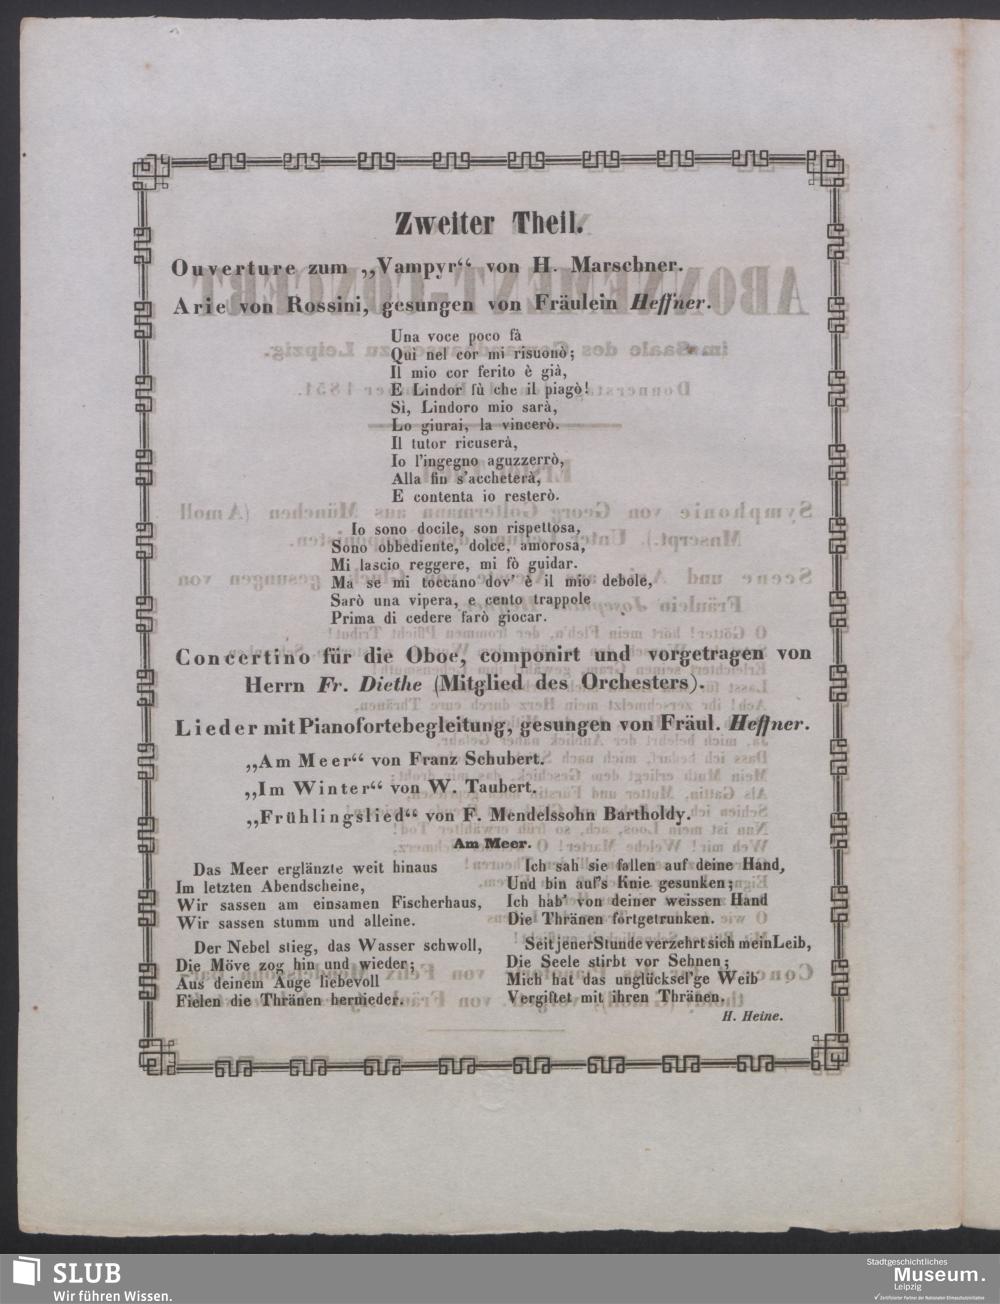 Zweiter Theil.
Ouverture zum „Vampyr“ von H. Marschner.
Arie von Rossini, gesungen von Fräulein Heffner.
Una voce poco fà
Qui nel cor mi risuonò;
Il mio cor ferito è già,
E Lindor fù che il piagò!
Sì, Lindoro mio sarà,
Lo giurai, la vincerò.
Il tutor ricuserà,
Io l'ingegno aguzzerrò,
Alla fin s'accheterà,
E contenta io resterò.
Io sono docile, son rispettosa,
Sono obbediente, dolce, amorosa,
Mi lascio reggere, mi fò guidar.
Ma se mi toccano dov' è il mio debole,
Sarò una vipera, e cento trappole
Prima di cedere farò giocar.
Concertino für die Oboe, componirt und vorgetragen von
Herrn Fr. Diethe (Mitglied des Orchesters).
Lieder mit Pianofortebegleitung, gesungen von Fräul. Heffner.
„Am Meer“ von Franz Schubert.
„Im Winter“ von W. Taubert.
„Frühlingslied“ von F. Mendelssohn Bartholdy.
Am Meer.
Das Meer erglänzte weit hinaus
Im letzten Abendscheine,
Wir sassen am einsamen Fischerhaus,
Wir sassen stumm und alleine.
Der Nebel stieg, das Wasser schwoll,
Die Möve zog hin und wieder;
Aus deinem Auge liebevoll
Fielen die Thränen hernieder.
Ich sah sie fallen auf deine Hand,
Und bin auf's Knie gesunken;
Ich hab' von deiner weissen Hand
Die Thränen fortgetrunken.
Seit jener Stunde verzehrt sich mein Leib,
Die Seele stirbt vor Sehnen;
Mich hat das unglücksel'ge Weib
Vergiftet mit ihren Thränen.
H. Heine.
SLUB
Wir führen Wissen.
Stadtgeschichtliches
Museum.
Leipzig
Zertifizierter Partner der Nationalen Klimaschutzinitiative